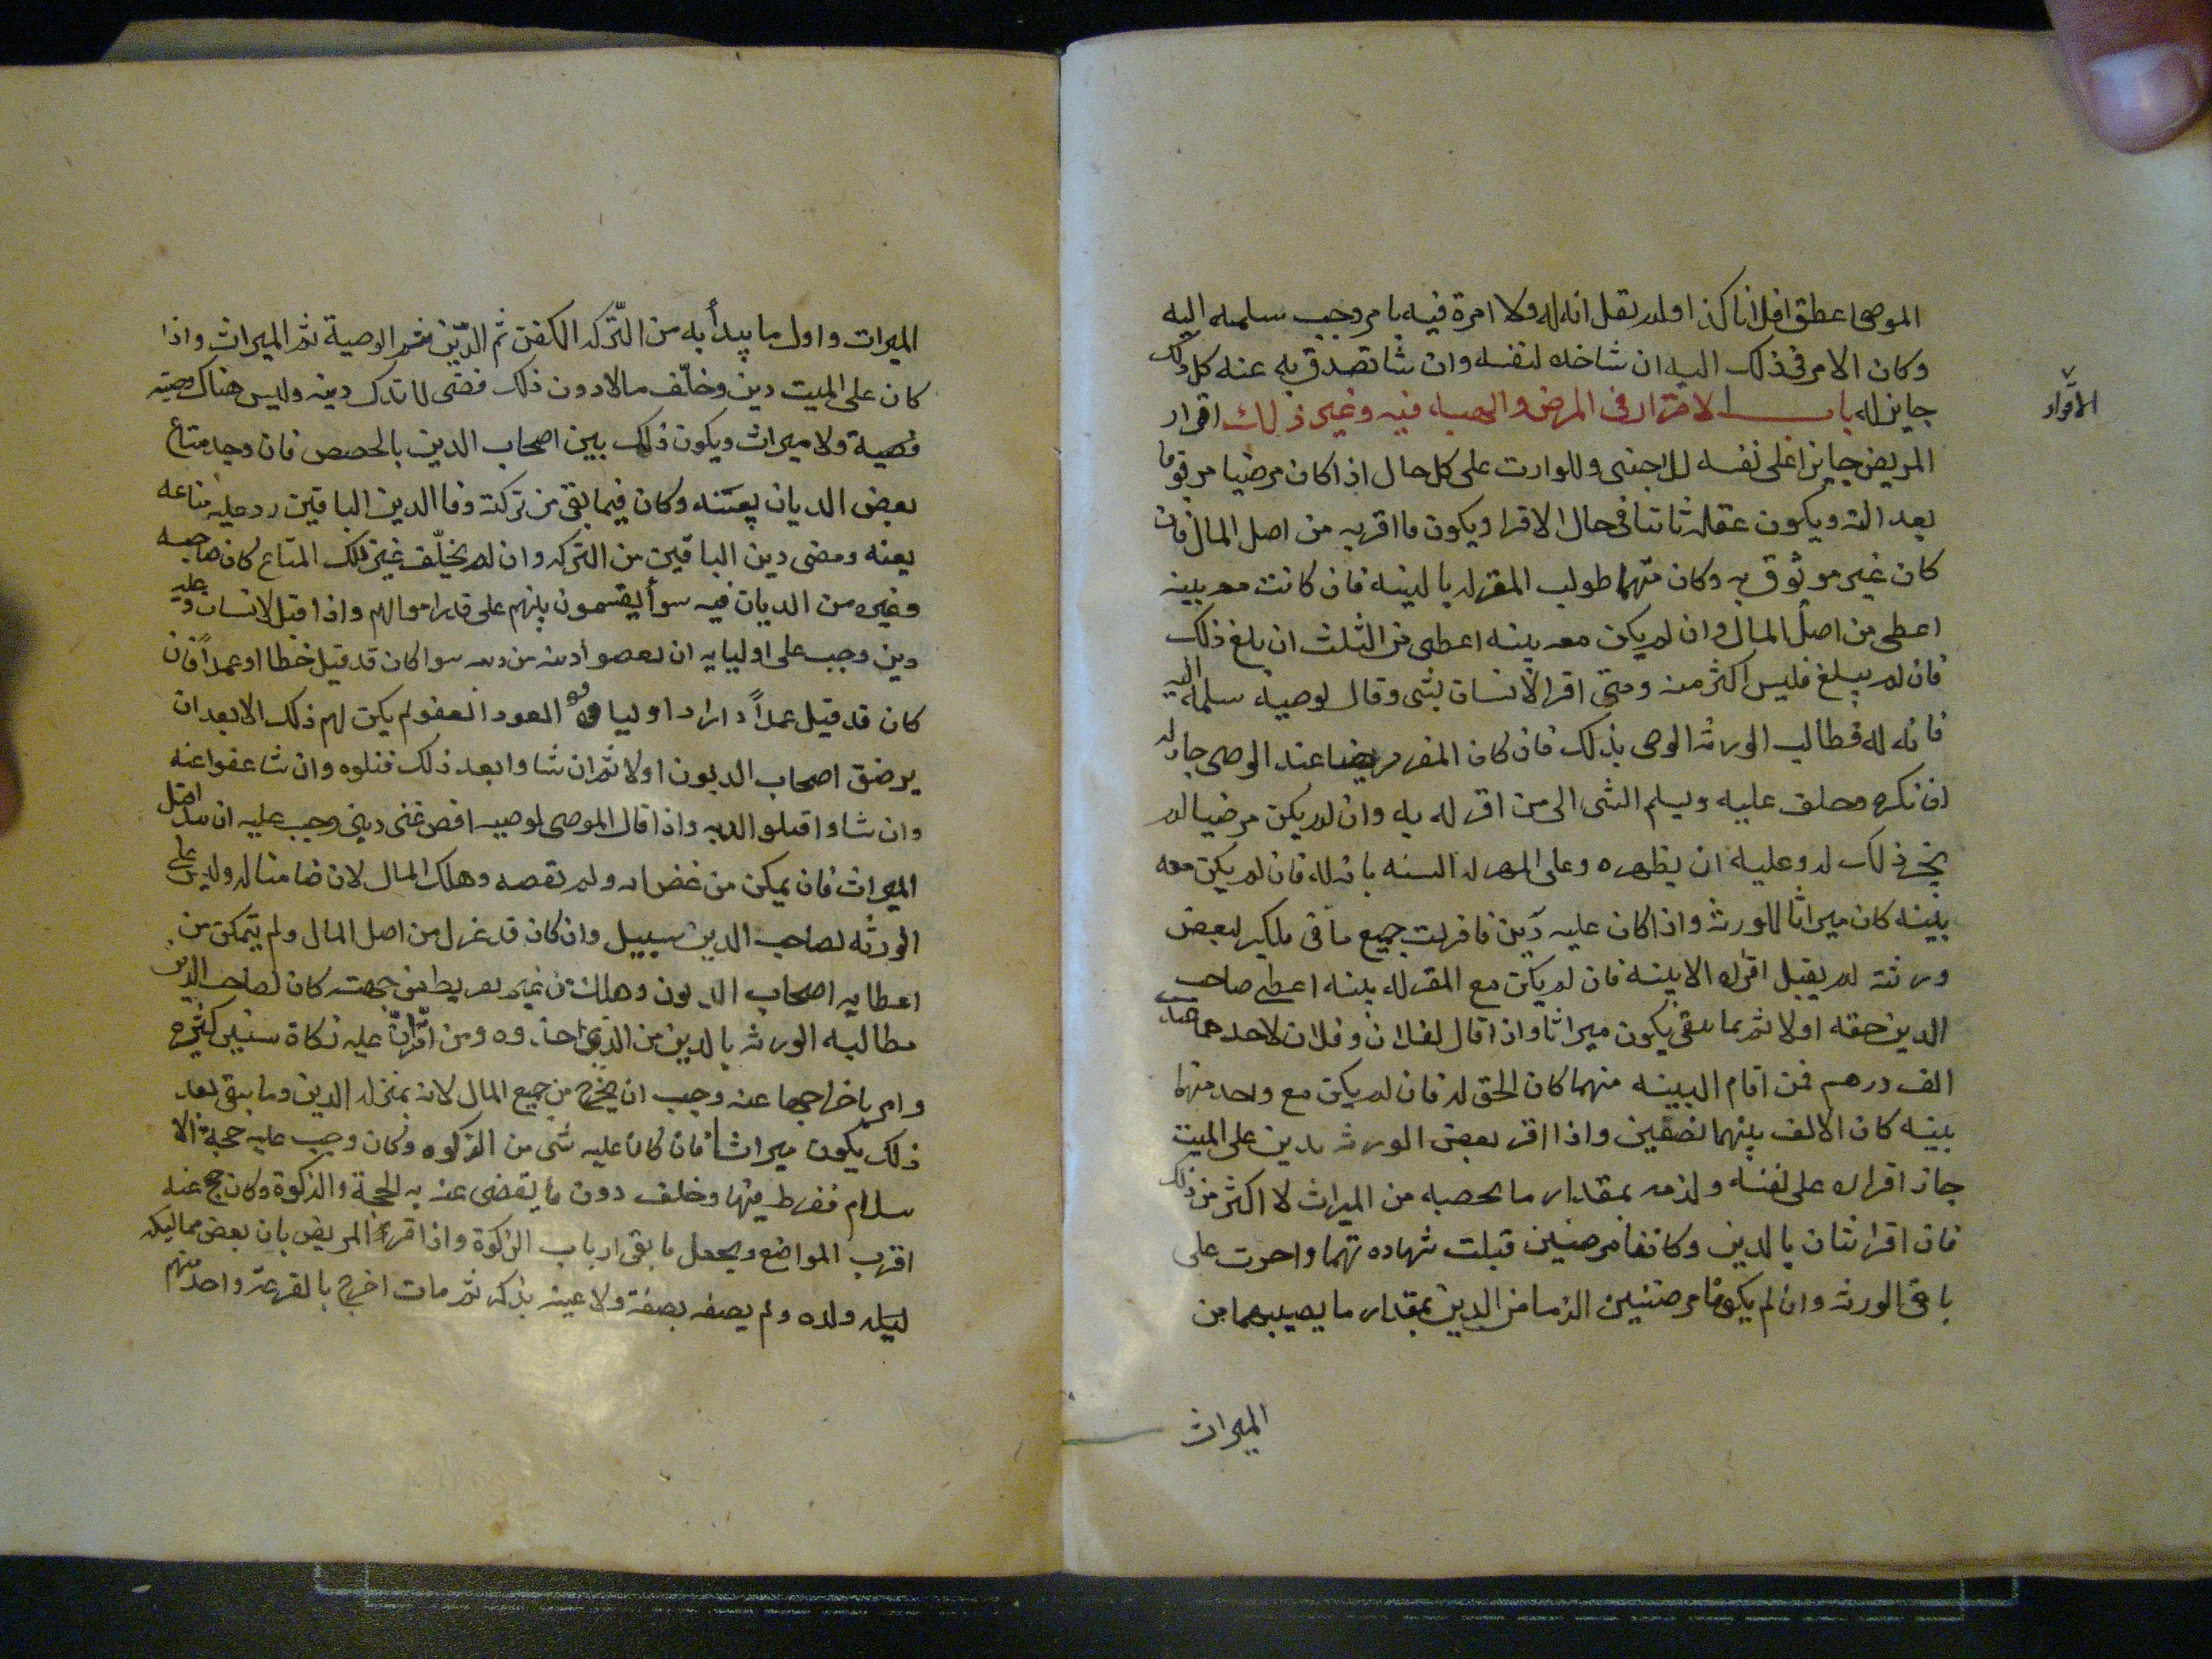 الموصى اعط فلانا كذا ولم يقل انه له ولا امره فيه بامر وجب تسليمه اليه
وكان الامر فى ذلك اليه ان شا اخذه لنفسه وان شا تصدق به عنه كل ذلك
جايز له باب الاقرار فى المرض والهبة فيه وغير ذلك اقرار
الاقرار
المريض جايزا على نفسه للاجنبى وللوارث على كل حال اذا كان مرضيا موثوقا
بعدالته ويكون عقله ثابتا فى حال الاقرار ويكون ما اقر به من اصل المال فان
كان غير موثوق به وكان متهما طولب المقر له بالبينه فان كانت معه بينه
اعطى من اصل المال وان لم يكن معه بينه اعطى من الثلث ان بلغ ذلك
فان لم يبلغ فليس اكثر منه ومتى اقر الانسان بشى وقال لوصيه سلمه اليه
فانه له فطالب الورثه الوصى بذلك فان كان المقر مرضيا عند الوصى جاز له
ان ينكره ويحلف عليه ويسلم الشى الى من اقر له به وان لم يكن مرضيا لم
يجز ذلك له وعليه ان يظهره وعلى المقر له البينه بانه له فان لم يكن معه
بينه كان ميراثا للورثة واذا كان عليه دين فاقر ان جميع ما فى ملكه لبعض
ورثته لم يقبل اقراره الا ببينه فان لم يكن مع المقر له بينه اعطى صاحب
الدين حقه اولا ثم ما يبقى يكون ميراثا واذا قال لفلان وفلان لاحدهما عندى
الف درهم فمن اقام البينه منهما كان الحق له فان لم يكن مع واحد منهما
بينه كان الالف بينهما نصفين واذا اقر بعض الورثه بدين على الميت
جاز اقراره على نفسه ولزمه بمقدار ما يخصه من الميراث لا اكثر من ذلك
فان اقر اثنان بالدين وكانا مرضيين قبلت شهادتهما واجريت على
باقى الورثه وان لم يكونا مرضيين الزما من الدين بمقدار ما يصيبهما من
الميراث
الميراث واول ما يبدأ به من التّركه الكفن ثم الدّين ثم الوصية ثم الميراث واذا
كان على الميت دين وخلّف مالا دون ذلك قضى بما ترك دينه وليس هناك وصيته
وصية ولا ميراث ويكون ذلك بين اصحاب الدين بالحصص فان وجد متاع
بعض الديان بعينه وكان فيما بقى من تركته وفا الدين الباقين رد عليه متاعه
بعينه وقضى دين الباقين من التركه وان لم يخلّف غير ذلك المتاع كان صاحبه
وغيره من الديان فيه سوأ يقتسمون بينهم على قدر اموالهم واذا قتل الانسان وعليه
دين وجب على اوليايه ان يقضوا دينه من ديته سوا كان قد قتل خطا او عمداً فان
كان قد قتل عمداً واراد اولياوه القود او العفو لم يكن لهم ذلك الا بعد ان
يرضوا اصحاب الديون اولا ثم ان شاوا بعد ذلك قتلوه وان شا عفوا عنه
وان شاوا قبلوا الديه واذا قال الموصى لوصيه اقض عنى دينى وجب عليه ان يبدا به قبل
الميراث فان تمكن من قضايه ولم يقضه وهلك المال كان ضامنا له وليس على
الورثه لصاحب الدين سبيل وان كان قد عزل من اصل المال ولم يتمكن من
اعطايه اصحاب الديون وهلك من غير تفريط من جهته كان لصاحب الدين
مطالبه الورثه بالدين من الذى اخذوه ومن اقر ان عليه زكاة سنين كثيرة
وامر باخراجها عنه وجب ان يخرج من جميع المال لانه بمنزله الدين وما يبقى بعد
ذلك يكون ميراثاً فان كان عليه شى من الزكوه وكان وجب عليه حجة الا
سلام ففرط فيها وخلف دون ما يقضى عنه به الحجة والزكوة وكان حج عنه
اقرب المواضع ويجعل ما بقى ارباب الزكوة واذا اقر المريض بان بعض مماليكه
ليله ولده ولم يصفه بصفة ولا عينه بذكر ثم مات اخرج بالقرعة واحد منهم